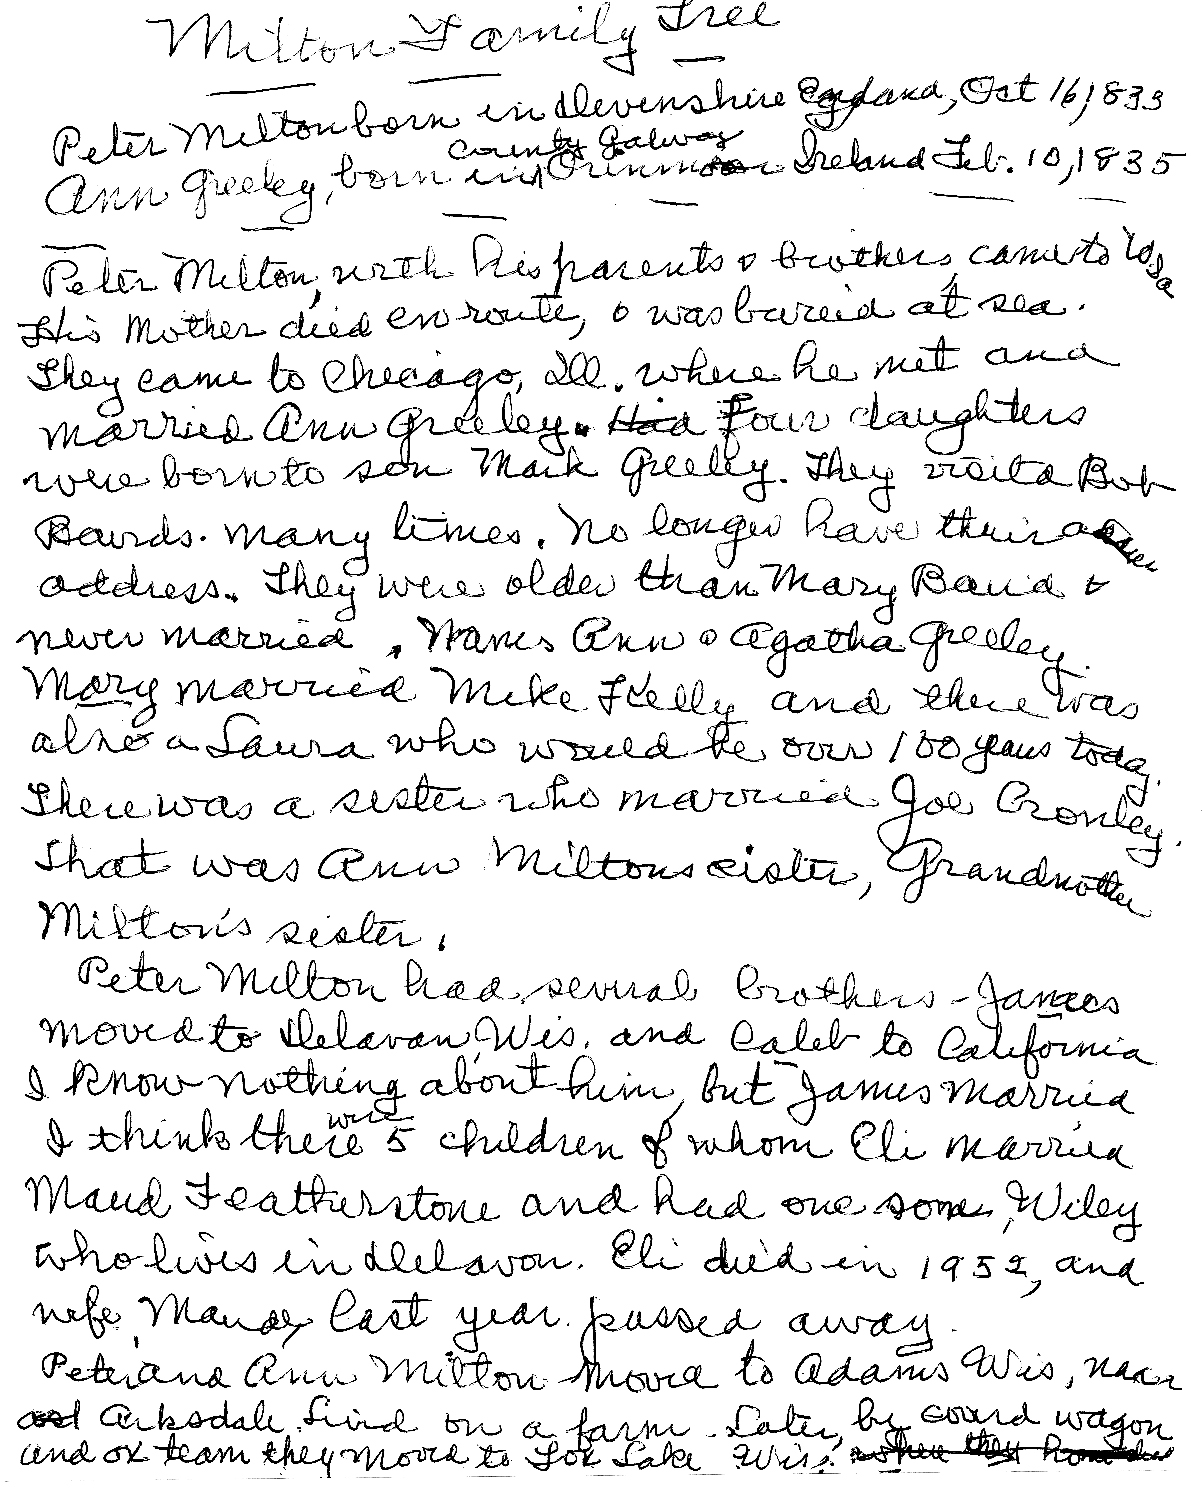 Milton Family Tree
Peter Milton born in Devenshire England, Oct 16, 1833
County Galway
Ann Greeley, born in Ireland Feb. 10, 1835
Peter Milton, with his parents & brothers, came to USA
His Mother died enroute, & was bureid at sea.
They came to Chicago, Ill. where he met and
married Ann Greeley. Had Four daughters
were born to son Mark Greeley. They visitd Bob
Bairds. many times. No longer have their
address. They were older than Mary Baird &
never married. Names Ann & Agatha Greeley.
Mary married Mike Kelly and there was
also a Laura who would be over 100 years today.
There was a sister who married Joe Cronley.
That was Ann Miltons sister, Grandmother
Milton's sister.
Peter Milton had several brothers - James
moved to Delavan, Wis. and Caleb to California
I know nothing about him, but James married
were
I think there 5 children of whom Eli married
Maud Featherstone and had one son, Wiley
who lives in Delavon. Eli died in 1952, and
wife, Maude, last year passed away.
Peter and Ann Milton moved to Adams Wis, near
Arksdale. Livd on a farm. Later, by coverd wagon
and ox team they moved to Fox Lake Wis. where they